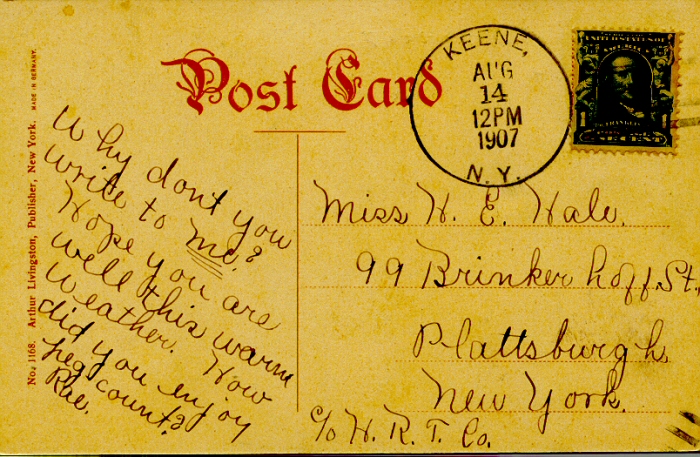 Post Card
KEENE,
AUG
14
12PM
1907
N. Y.
No. 1168. Arthur Livingston, Publisher, New York. MADE IN GERMANY.
Why dont you
write to me?
Hope you are
well this warm
weather. How
did you enjoy
Rae.
Miss H. E. Hale.
99 Brinkerhoff St.,
Plattsburgh
New York.
c/o H. R. T. Co.